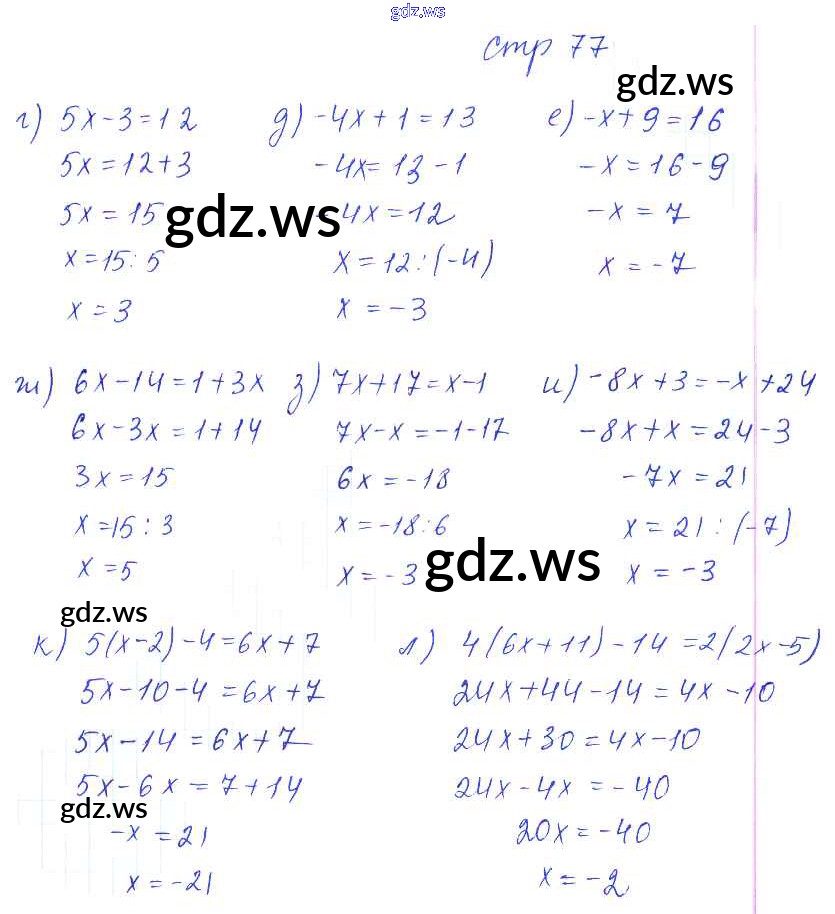 gdz.ws
стр 77
gdz.ws
г) 5x-3=12
5x=12+3
5x=15
x=15:5
x=3
д) -4x+1=13
-4x=13-1
gdz.ws
-4x=12
x=12:(-4)
x=-3
е) -x+9=16
-x=16-9
-x=7
x=-7
ж) 6x-14=1+3x
6x-3x=1+14
3x=15
x=15:3
x=5
з) 7x+17=x-1
7x-x=-1-17
6x=-18
x=-18:6
x=-3
gdz.ws
и) -8x+3=-x+24
-8x+x=24-3
-7x=21
x=21:(-7)
x=-3
gdz.ws
к) 5(x-2)-4=6x+7
5x-10-4=6x+7
5x-14=6x+7
5x-6x=7+14
gdz.ws
-x=21
x=-21
л) 4(6x+11)-14=2(2x-5)
24x+44-14=4x-10
24x+30=4x-10
24x-4x=-40
20x=-40
x=-2